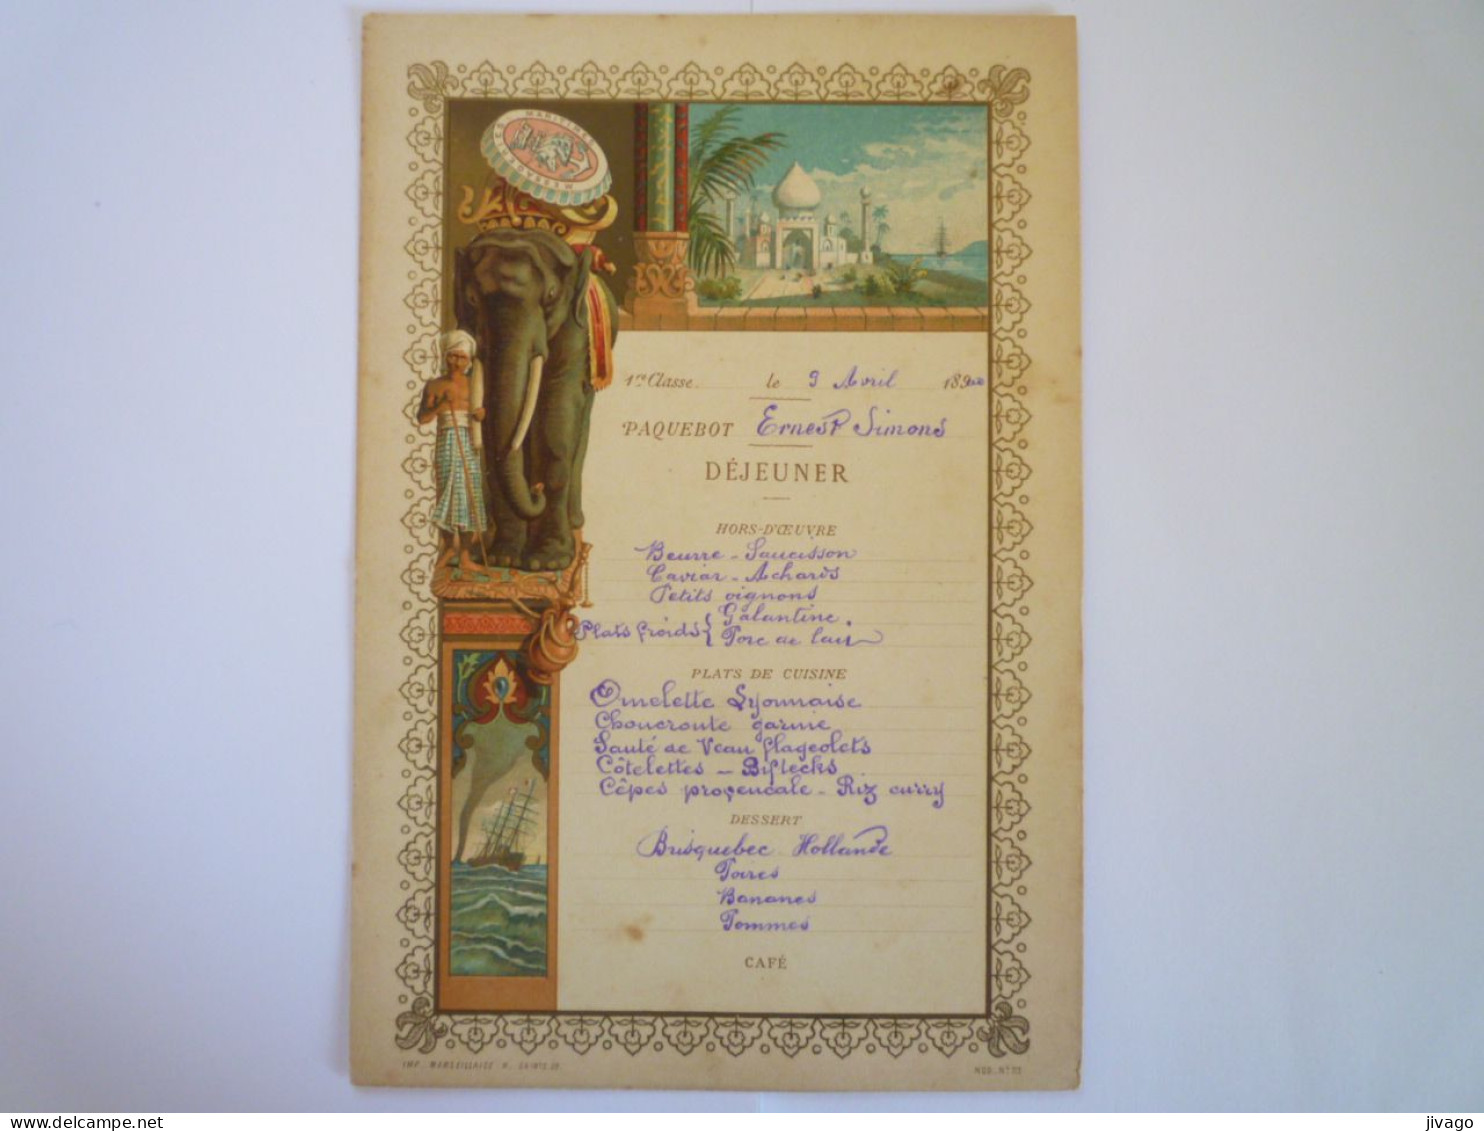 MESSAGERIES MARITIMES
1re Classe. le 9 Avril 189
PAQUEBOT Ernest Simons
DÉJEUNER
HORS-D'ŒUVRE
Beurre - Saucisson
Caviar - Achards
Petits oignons
Plats froids { Galantine
Porc de lait
PLATS DE CUISINE
Omelette Lyonnaise
Choucroute garnie
Sauté de Veau flageolets
Côtelettes - Biftecks
Cêpes provençale - Riz curry
DESSERT
Brisquebec Hollande
Poires
Bananes
Pommes
CAFÉ
IMP. MARSEILLAISE. R. SAINTE 39.
jivago